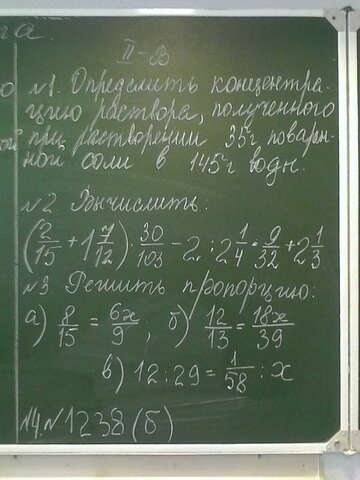 га.
II-В
№1. Определить концентра-
цию раствора, полученного
при растворении 35г поварен-
ной соли в 145г воды.
№2. Вычислить:
(2/15 + 1 7/12) · 30/103 - 2 : 2 1/4 · 9/32 + 2 1/3
№3 Решить пропорцию:
а) 8/15 = 6x/9 ; б) 12/13 = 18x/39
в) 12 : 29 = 1/58 : x
№4. №1238(б)